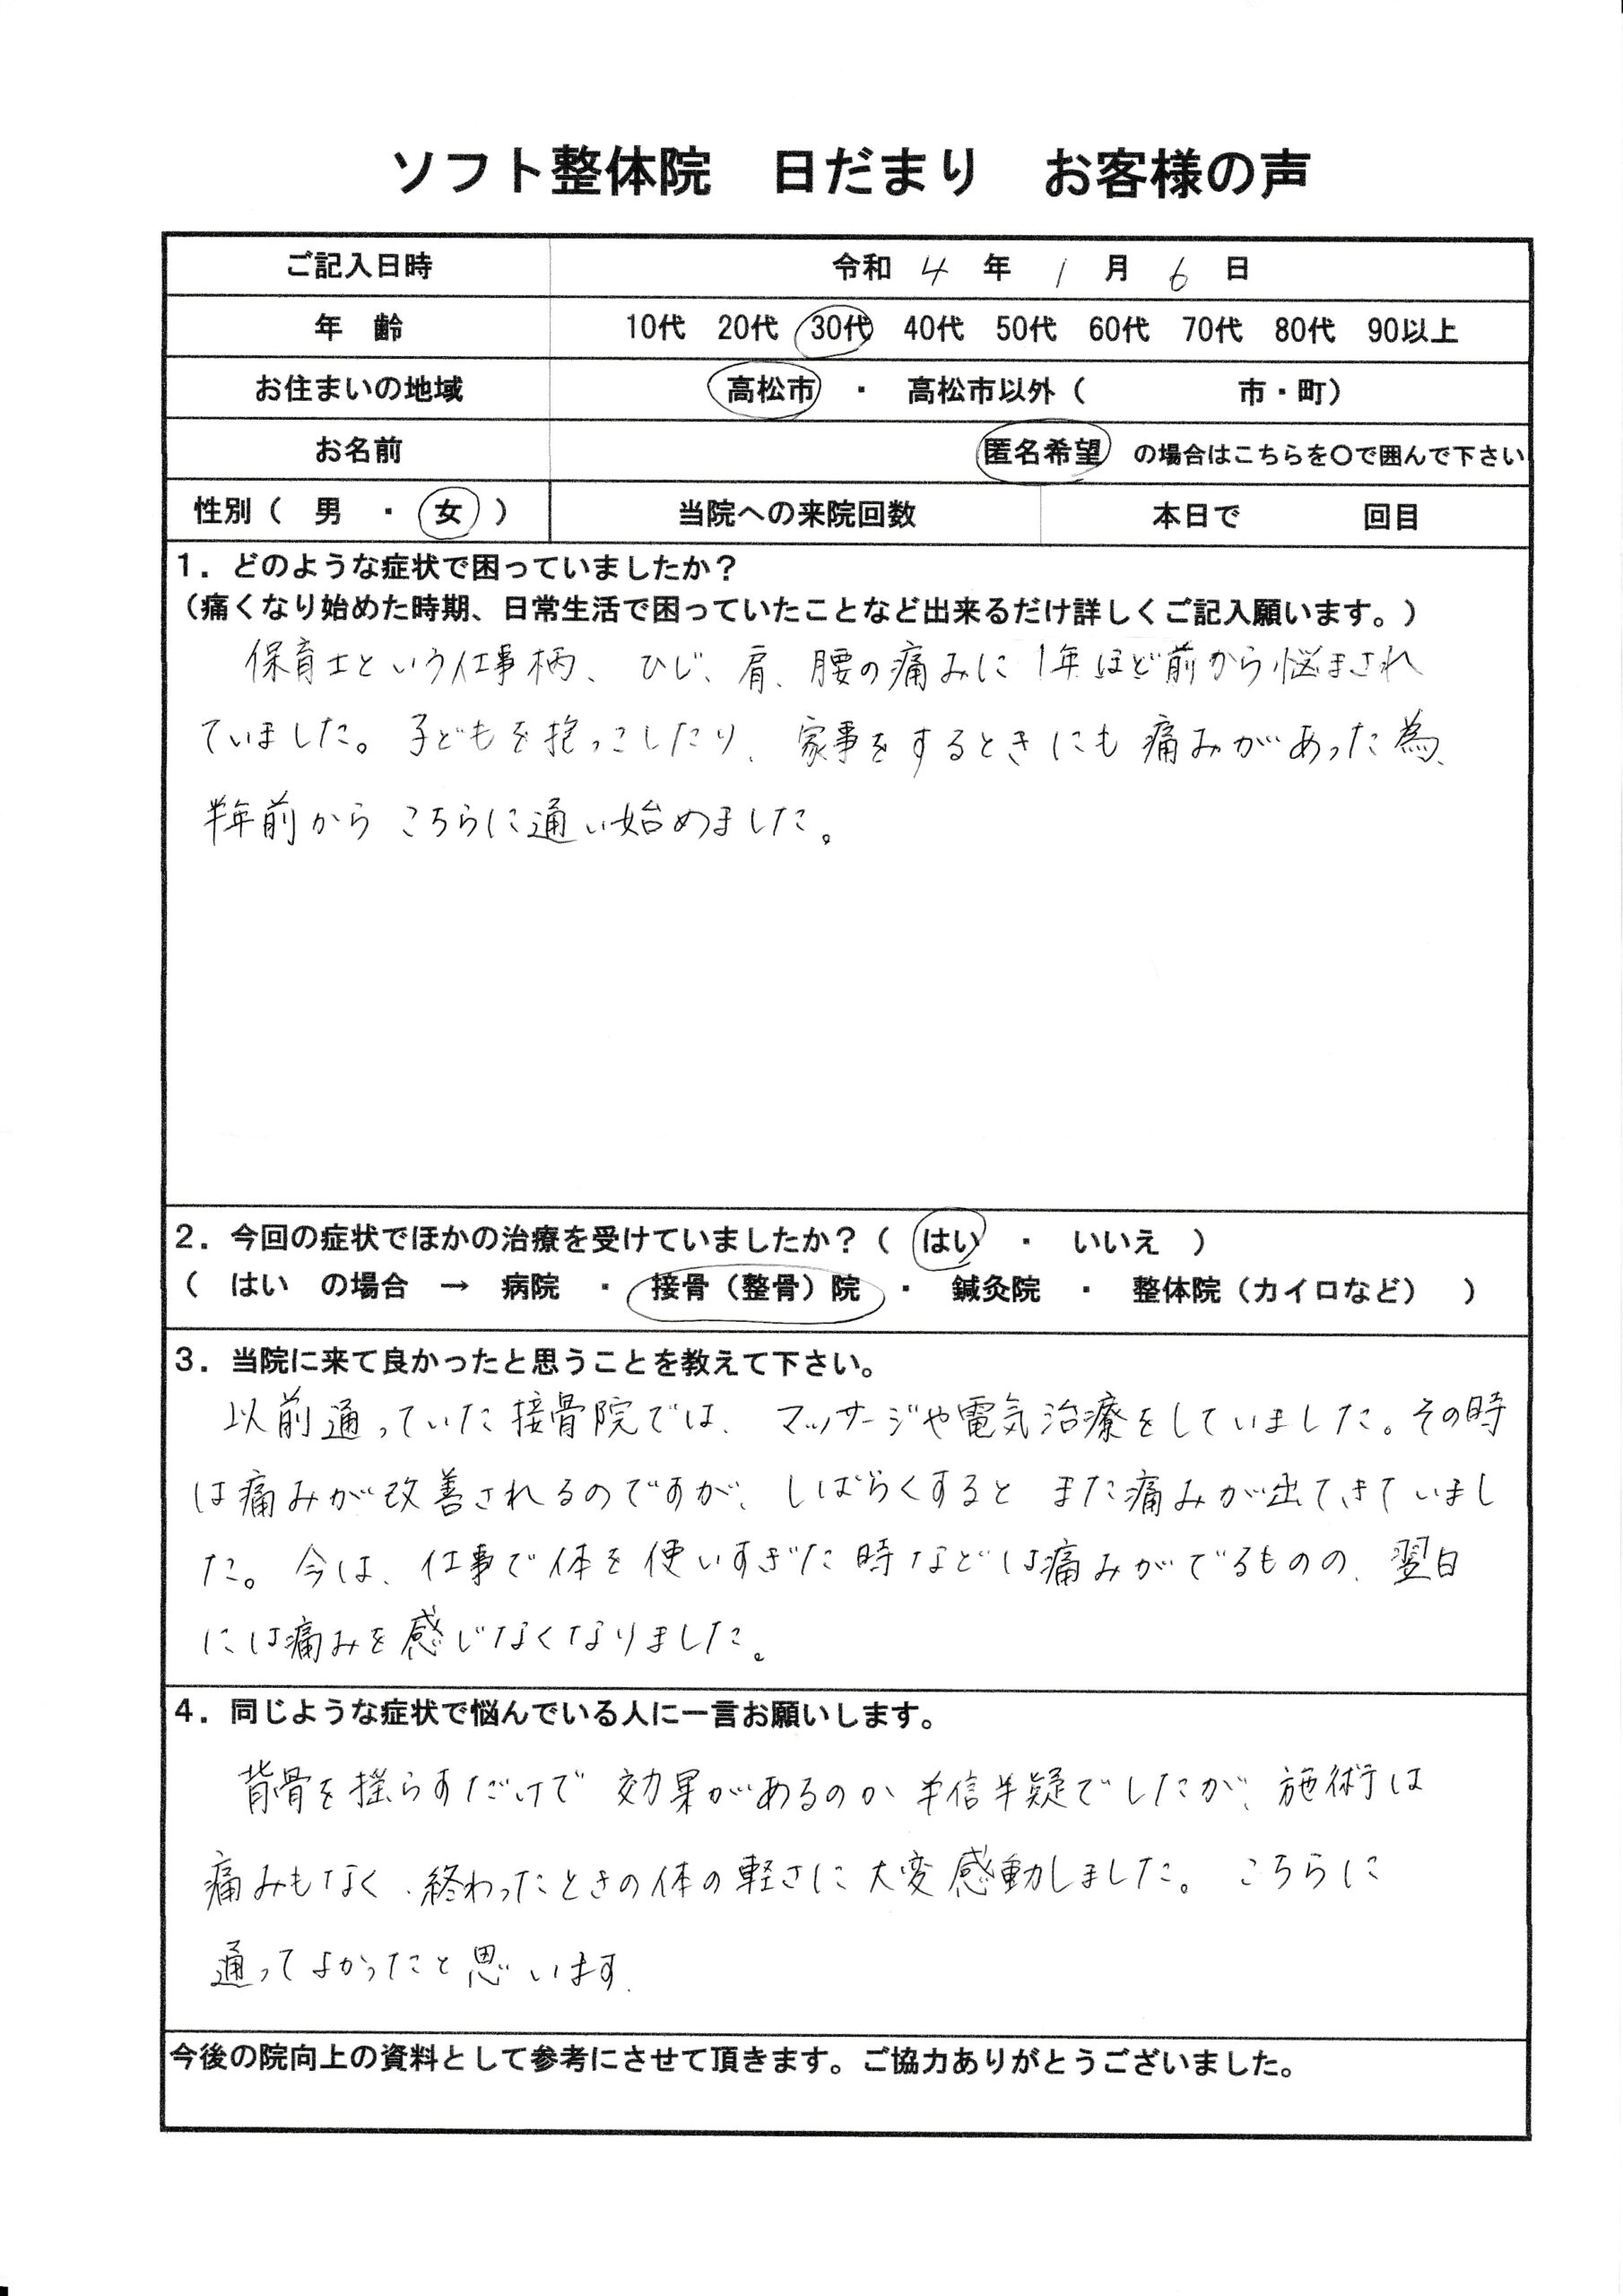 ソフト整体院　日だまり　お客様の声
ご記入日時　令和 4 年 1 月 6 日
年　齢　10代　20代　30代　40代　50代　60代　70代　80代　90以上
お住まいの地域　高松市　・　高松市以外（　　　　　市・町）
お名前　匿名希望　の場合はこちらを〇で囲んで下さい
性別（　男　・　女　）　当院への来院回数　本日で　　　　回目
1．どのような症状で困っていましたか？
（痛くなり始めた時期、日常生活で困っていたことなど出来るだけ詳しくご記入願います。）
保育士という仕事柄、ひじ、肩、腰の痛みに1年ほど前から悩まされ
ていました。子どもを抱っこしたり、家事をするときにも痛みがあった為、
半年前からこちらに通い始めました。
2．今回の症状でほかの治療を受けていましたか？（　はい　・　いいえ　）
（　はい　の場合　→　病院　・　接骨（整骨）院　・　鍼灸院　・　整体院（カイロなど）　）
3．当院に来て良かったと思うことを教えて下さい。
以前通っていた接骨院では、マッサージや電気治療をしていました。その時
は痛みが改善されるのですが、しばらくするとまた痛みが出てきていまし
た。今は、仕事で体を使いすぎた時などは痛みがでるものの、翌日
には痛みを感じなくなりました。
4．同じような症状で悩んでいる人に一言お願いします。
背骨を揺らすだけで効果があるのか半信半疑でしたが、施術は
痛みもなく、終わったときの体の軽さに大変感動しました。こちらに
通ってよかったと思います。
今後の院向上の資料として参考にさせて頂きます。ご協力ありがとうございました。